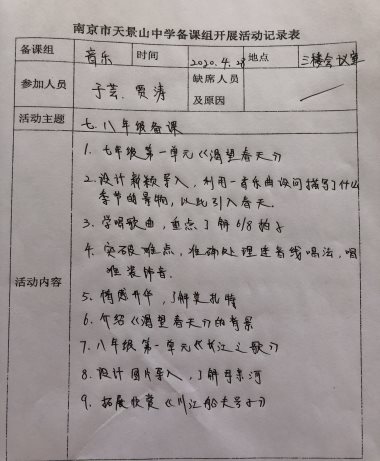 南京市天景山中学备课组开展活动记录表
备课组 音乐 时间 2020.4.27 地点 三楼会议室
参加人员 于芸、贾涛 缺席人员
及原因
活动主题 七.八年级备课
活动内容
1. 七年级第一单元《渴望春天》
2. 设计新颖导入，利用一音乐曲设问描写了什么
季节的景物，以此引入春天.
3. 学唱歌曲，重点了解6/8拍子
4. 突破难点，准确处理连音线唱法，唱
准装饰音.
5. 情感升华，了解莫扎特
6. 介绍《渴望春天》的背景
7. 八年级第一单元《长江之歌》
8. 设计图片导入，了解母亲河
9. 拓展欣赏《川江船夫号子》